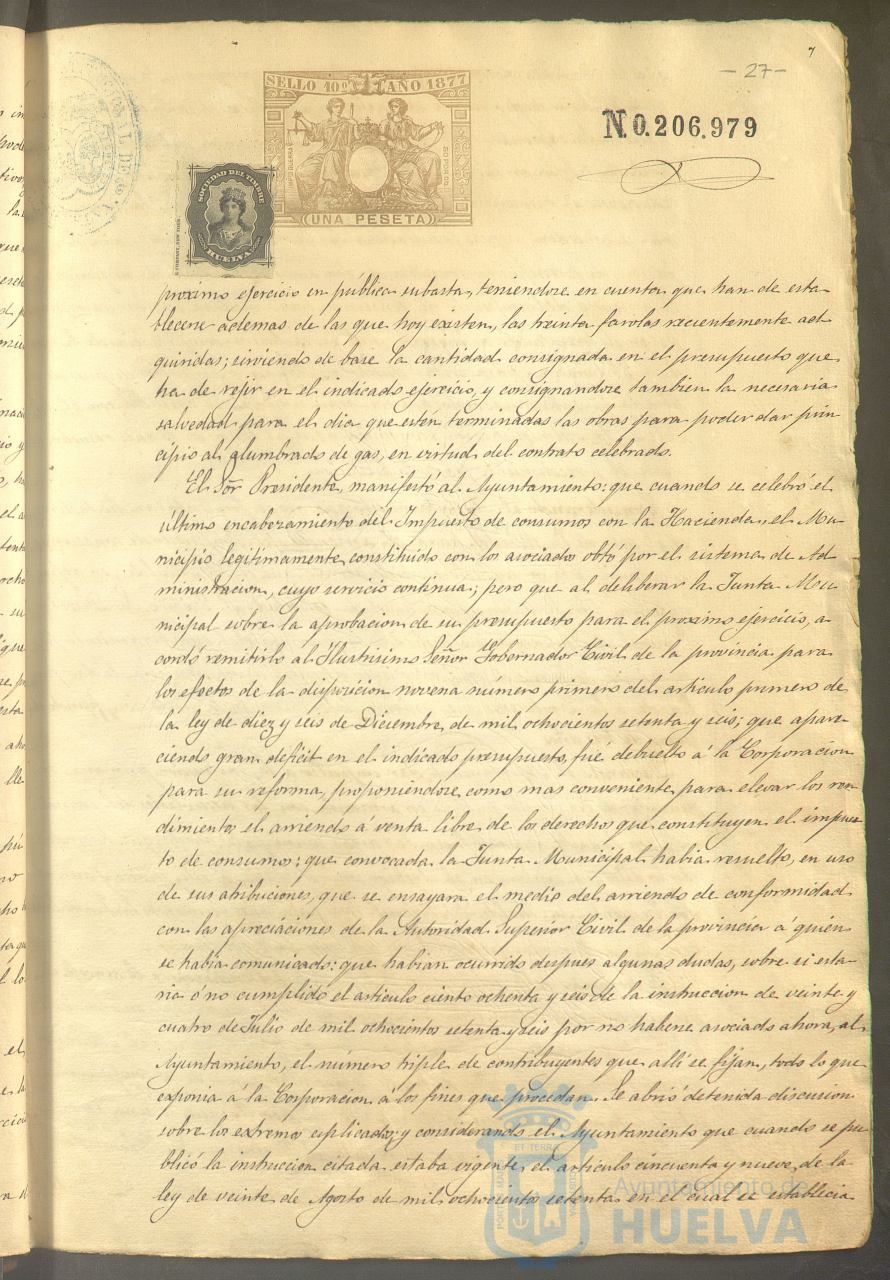 7
- 27 -
SELLO 10º AÑO 1877
N.0.206.979
SOCIEDAD DEL TIMBRE
HUELVA
UNA PESETA
proximo ejercicio en pública subasta, teniendose en cuenta que han de esta-
blecerse ademas de las que hoy existen, las treinta farolas recientemente ad-
quiridas; sirviendo de base la cantidad consignada en el presupuesto que
ha de rejir en el indicado ejercicio, y consignandose tambien la necesaria
salvedad para el dia que estén terminadas las obras para poder dar prin-
cipio al alumbrado de gas, en virtud del contrato celebrado.
El Sor Presidente, manifestó al Ayuntamiento: que cuando se celebró el
último encabezamiento del Impuesto de consumos con la Hacienda, el Mu-
nicipio legitimamente constituido con los asociados obtó por el sistema de Ad-
ministracion, cuyo servicio continua; pero que al deliberar la Junta Mu-
nicipal sobre la aprobacion de su presupuesto para el proximo ejercicio, a-
cordó remitirlo al Ilustrisimo Señor Gobernador Civil de la provincia para
los efectos de la disposicion novena número primero del articulo primero de
la ley de diez y seis de Diciembre de mil ochocientos setenta y seis; que apare-
ciendo gran deficit en el indicado presupuesto, fué debuelto á la Corporacion
para su reforma, proponiendose como mas conveniente para elevar los ren-
dimientos el arriendo á venta libre de los derechos que constituyen el impues-
to de consumos; que convocada la Junta Municipal habia resuelto, en uso
de sus atribuciones, que se ensayara el medio del arriendo de conformidad
con las apreciaciones de la Autoridad Superior Civil de la provincia á quien
se habia comunicado: que habian ocurrido despues algunas dudas, sobre si esta-
ria ó no cumplido el articulo ciento ochenta y seis de la instruccion de veinte y
cuatro de Julio de mil ochocientos setenta y seis por no haberse asociado ahora, al
Ayuntamiento, el número triple de contribuyentes que alli se fijan, todo lo que
esponia á la Corporacion á los fines que procedan. Se abrió detenida discusion
sobre los extremos esplicados; y considerando el Ayuntamiento que cuando se pu-
blicó la instruccion citada estaba vigente el articulo cincuenta y nueve de la
ley de veinte de Agosto de mil ochocientos setenta en el cual se establecia
Ayuntamiento de
HUELVA